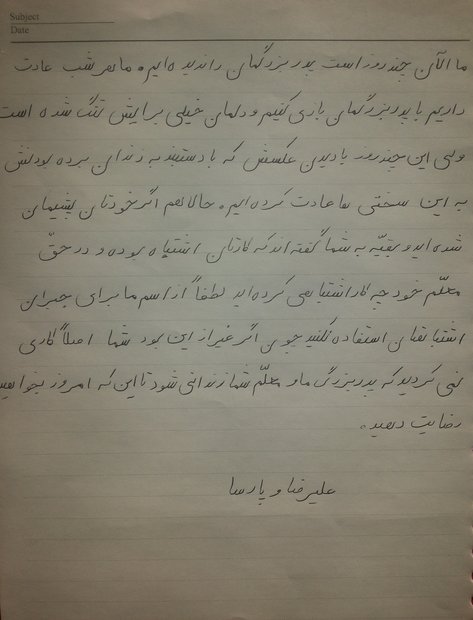 Subject
Date
ما الآن چند روز است پدربزرگمان را ندیده ایم. ما هر شب عادت
داریم با پدربزرگمان بازی کنیم و دلمان خیلی برایش تنگ شده است
ولی این چند روز با دیدن عکسش که با دستبند به زندان برده بودنش
به این سختی ها عادت کرده ایم. حالا هم اگر خودتان پشیمان
شده اید و بقیّه به شما گفته اند که کارتان اشتباه بوده و در حقّ
معلّم خود چه کار اشتباهی کرده اید لطفاً از اسم ما برای جبران
اشتباهتان استفاده نکنید چون اگر غیر از این بود شما اصلاً کاری
نمی کردید که پدربزرگ ما و معلّم شما زندانی شود تا این که امروز بخواهید
رضایت دهید.
علیرضا و پارسا